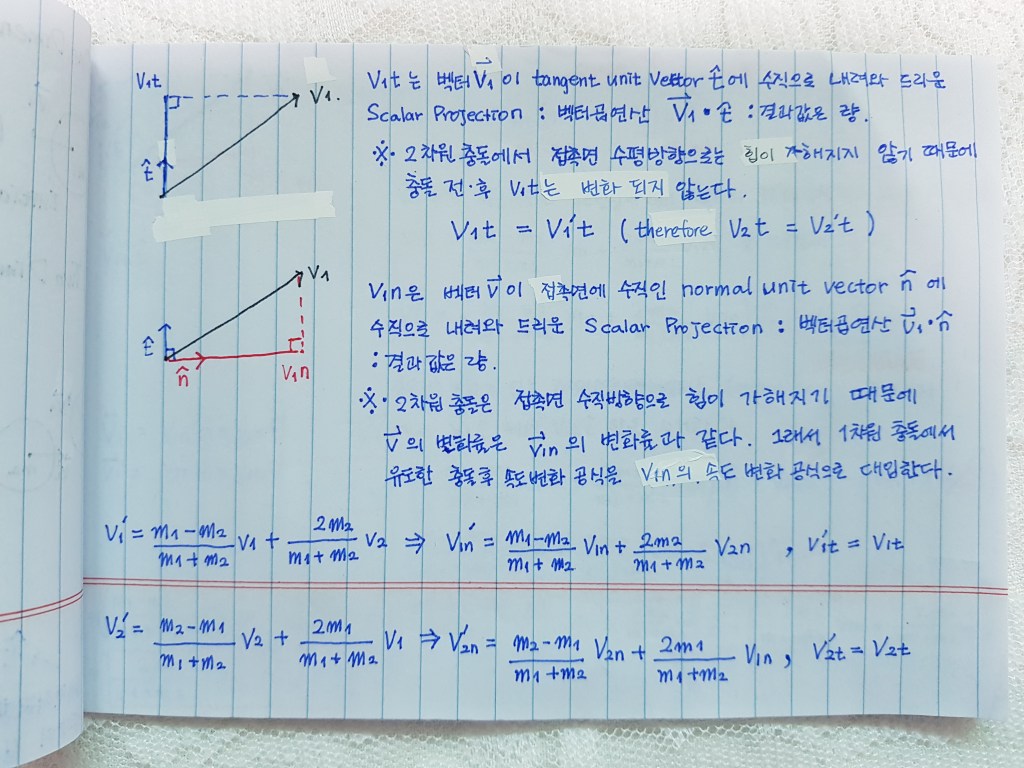 V₁t
V₁.
t̂
V₁t는 벡터 V⃗₁이 tangent unit vector t̂에 수직으로 내려와 드리운
Scalar Projection : 벡터곱연산 V⃗₁•t̂ : 결과값은 량.
※. 2차원 충돌에서 접촉면 수평방향으로는 힘이 가해지지 않기 때문에
충돌 전·후 V₁t는 변화 되지 않는다.
V₁t = V₁′t (therefore V₂t = V₂′t)
V₁
t̂
n̂
V₁n
V₁n은 벡터 V⃗이 접촉면에 수직인 normal unit vector n̂에
수직으로 내려와 드리운 Scalar Projection : 벡터곱연산 V⃗₁•n̂
: 결과값은 량.
※. 2차원 충돌은 접촉면 수직방향으로 힘이 가해지기 때문에
V⃗의 변화률은 V⃗₁n의 변화률과 같다. 그래서 1차원 충돌에서
유도한 충돌후 속도변화 공식을 V₁n의 속도 변화 공식으로 대입한다.
V₁′ = (m₁-m₂)/(m₁+m₂) V₁ + 2m₂/(m₁+m₂) V₂ ⇒ V₁n′ = (m₁-m₂)/(m₁+m₂) V₁n + 2m₂/(m₁+m₂) V₂n , V₁′t = V₁t
V₂′ = (m₂-m₁)/(m₁+m₂) V₂ + 2m₁/(m₁+m₂) V₁ ⇒ V₂n′ = (m₂-m₁)/(m₁+m₂) V₂n + 2m₁/(m₁+m₂) V₁n , V₂′t = V₂t